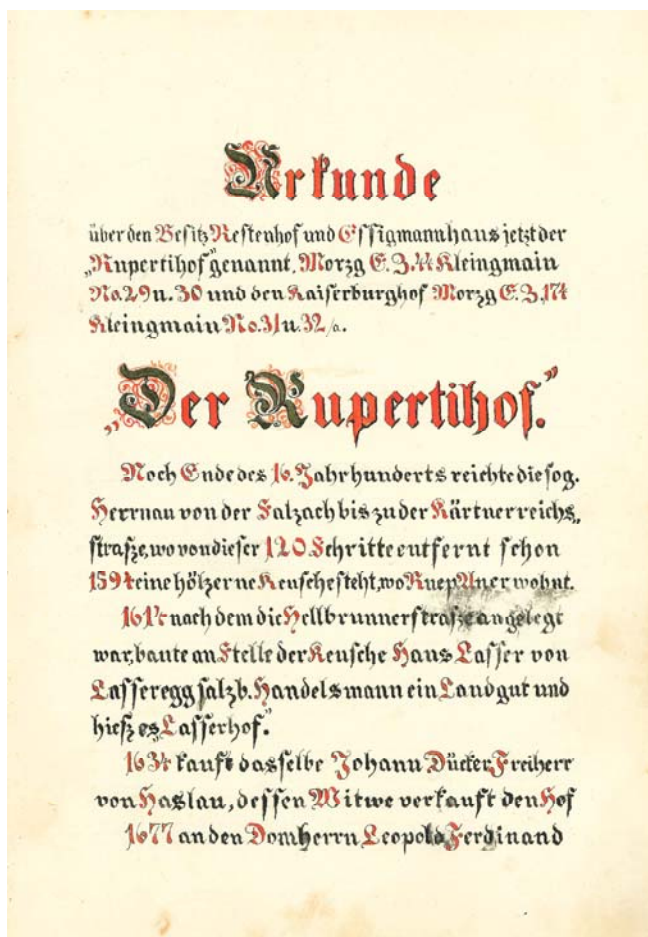 Urkunde
über den Besitz Restenhof und Essigmannhaus jetzt der
„Rupertihof" genannt, Morzg E. Z. 44 Kleingmain
No. 29 u. 30 und den Kaiserburghof Morzg E. Z. 174
Kleingmain No. 31 u. 32/a.
„Der Rupertihof."
Noch Ende des 16. Jahrhunderts reichte die sog.
Herrnau von der Salzach bis zu der Kärtnerreichs„
straſze, wo von dieser 120 Schritte entfernt schon
1594 eine hölzerne Keusche steht, wo Ruep Aner wohnt.
nach dem die Hellbrunnerstraſze angelegt
war, baute an Stelle der Keusche Hans Lasser von
Lasseregg salzb. Handelsmann ein Landgut und
hieſz es „Lasserhof."
1634 kauft dasselbe Johann Dücker Freiherr
von Haslau, dessen Witwe verkauft den Hof
1677 an den Domherrn Leopold Ferdinand